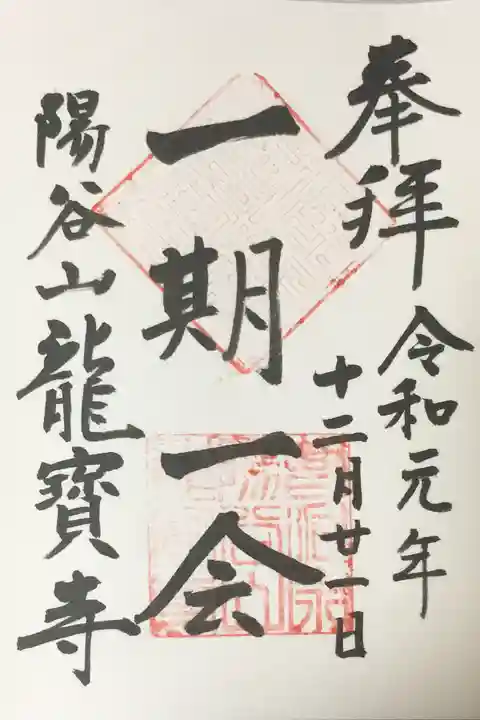 奉拝
令和元年
十二月廿一日
一期一会
陽谷山龍寳寺